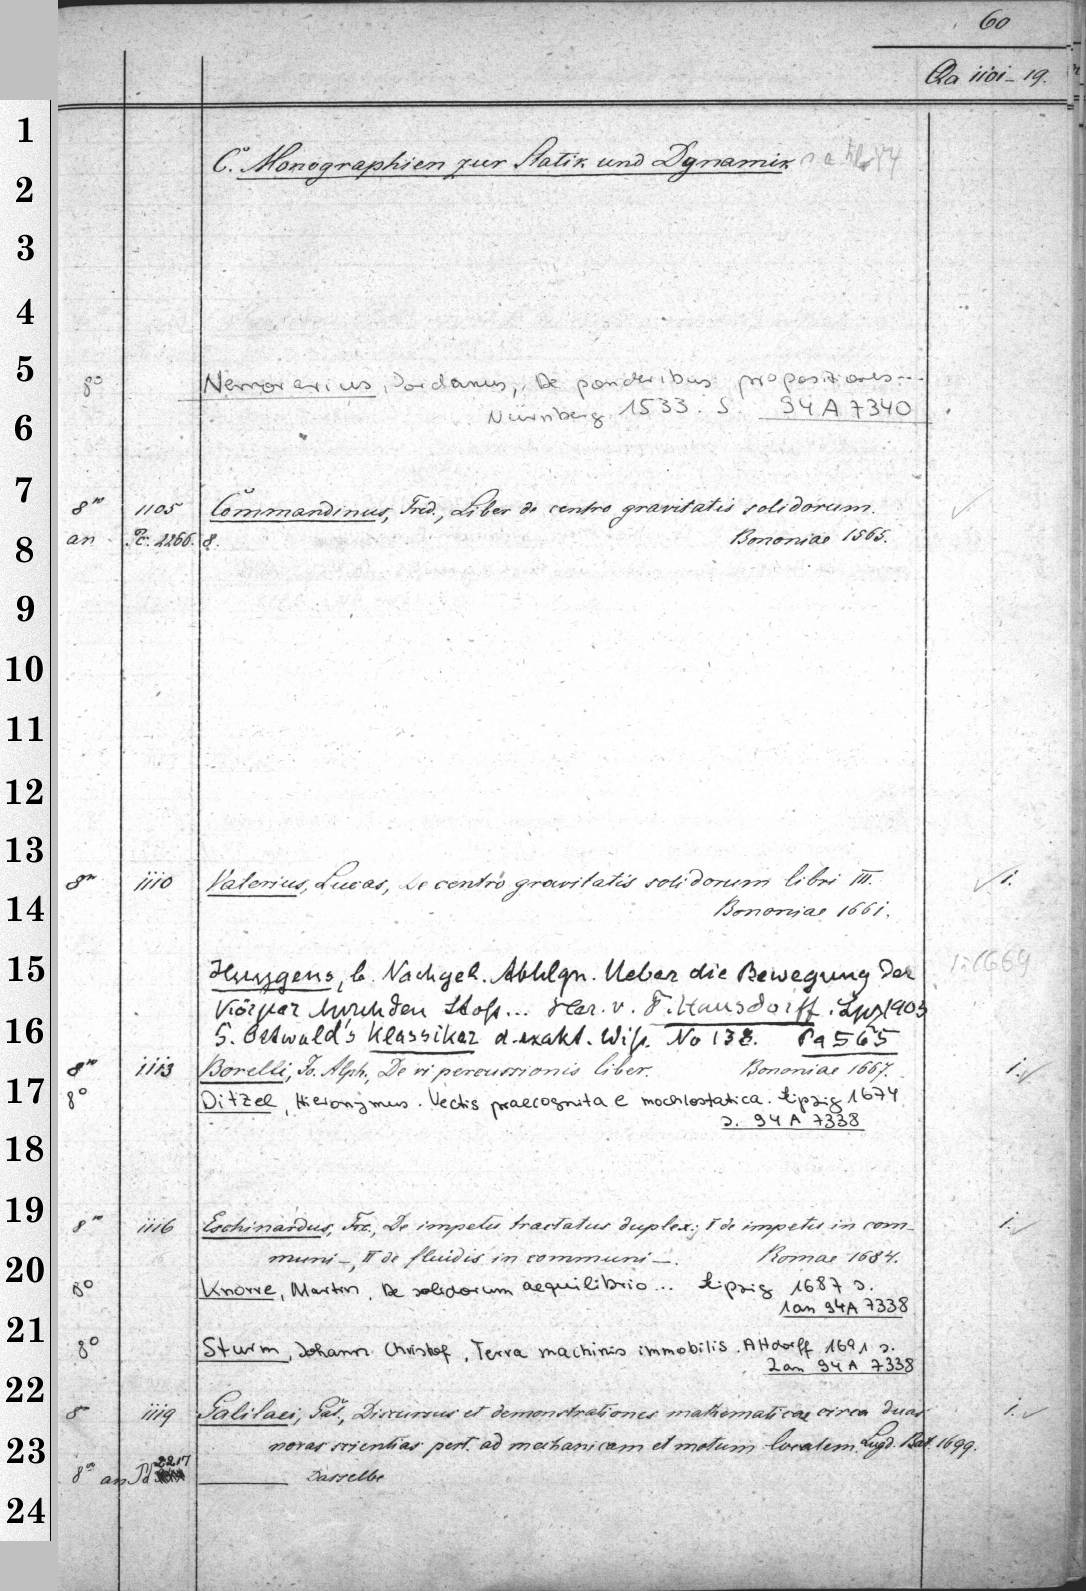 60
Qa 1101-19.
C. Monographien zur Statik und Dynamik
8° Nemorarius, Jordanus, De ponderibus propositiones...
Nürnberg 1533. S. 94 A 7340
8° 1105 Commandinus, Fred., Liber de centro gravitatis solidorum.
an Pc. 2266. 8. Bononiae 1565.
8° 1110 Valerius, Lucas, De centro gravitatis solidorum libri III. 1.
Bononiae 1661.
Huygens, C. Nachgel. Abhlgn. Ueber die Bewegung der 1:1669
Körper durch den Stoß... Her. v. F. Hausdorff. Lpz 1903
S. Ostwald's Klassiker d. exakt. Wiß. No 138. Pa 565
8° 1113 Borelli, Jo. Alph., De vi percussionis liber. Bononiae 1667. 1.
8° Ditzel, Hieronymus. Vectis praecognita e mochlostatica. Leipzig 1674
s. 94 A 7338
8° 1116 Eschinardus, Frc., De impetu tractatus duplex; I de impetu in com- 1.
muni-, II de fluidis in communi-. Romae 1684.
8° Knorre, Martin, De solidorum aequilibrio... Leipzig 1687 s.
1 an 94 A 7338
8° Sturm, Johann Christof, Terra machinis immobilis. Altdorff 1691 s.
2 an 94 A 7338
8° 1119 Galilaei, Gal., Discursus et demonstrationes mathematicae circa duas 1.
novas scientias pert. ad mechanicam et motum localem. Lugd. Bat. 1699.
8° an Pd 2217 Dasselbe
1
2
3
4
5
6
7
8
9
10
11
12
13
14
15
16
17
18
19
20
21
22
23
24